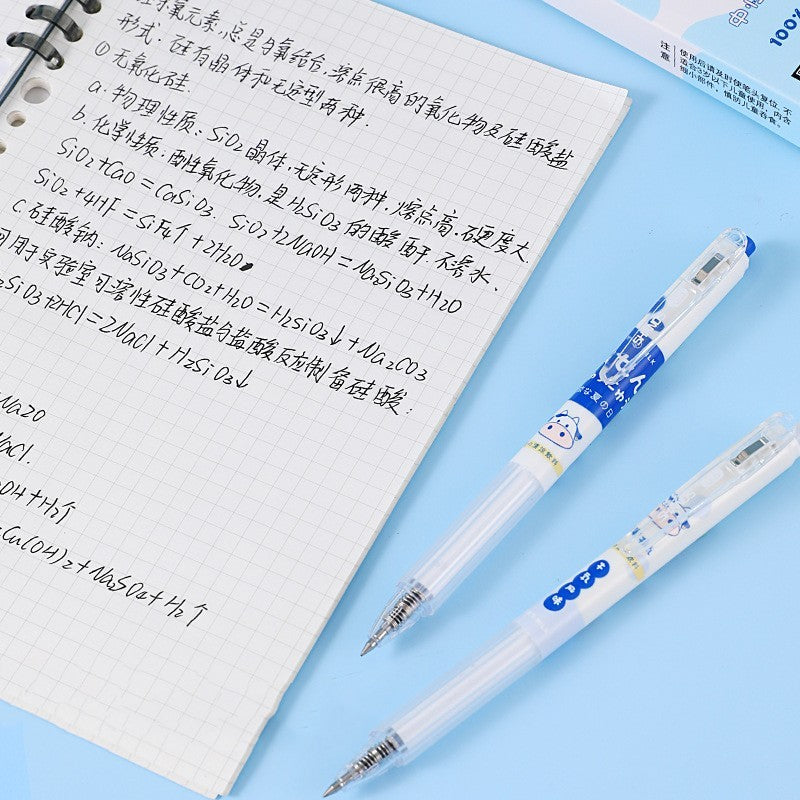 氧元素,总是与氧结合,溶点很高的氧化物及硅酸盐
形式.硅有晶体和无定型两种.
①无氧化硅.
a.物理性质:SiO2晶体,无定形两种,熔点高,硬度大
b.化学性质:酸性氧化物,是H2SiO3的酸酐,不溶水.
SiO2+CaO=CaSiO3. SiO2+2NaOH=Na2SiO3+H2O
SiO2+4HF=SiF4↑+2H2O
c.硅酸钠:NaSiO3+CO2+H2O=H2SiO3↓+Na2CO3
可用于实验室可溶性硅酸盐与盐酸反应制备硅酸:
SiO3+2HCl=2NaCl+H2SiO3↓
Na2O
NaCl.
OH+H2↑
Cu(OH)2+Na2SO4+H2↑
100%
注意
使用后请及时使笔头复位,不
适合3岁以下儿童使用,内含
细小部件,慎防儿童吞食。
な夏の日